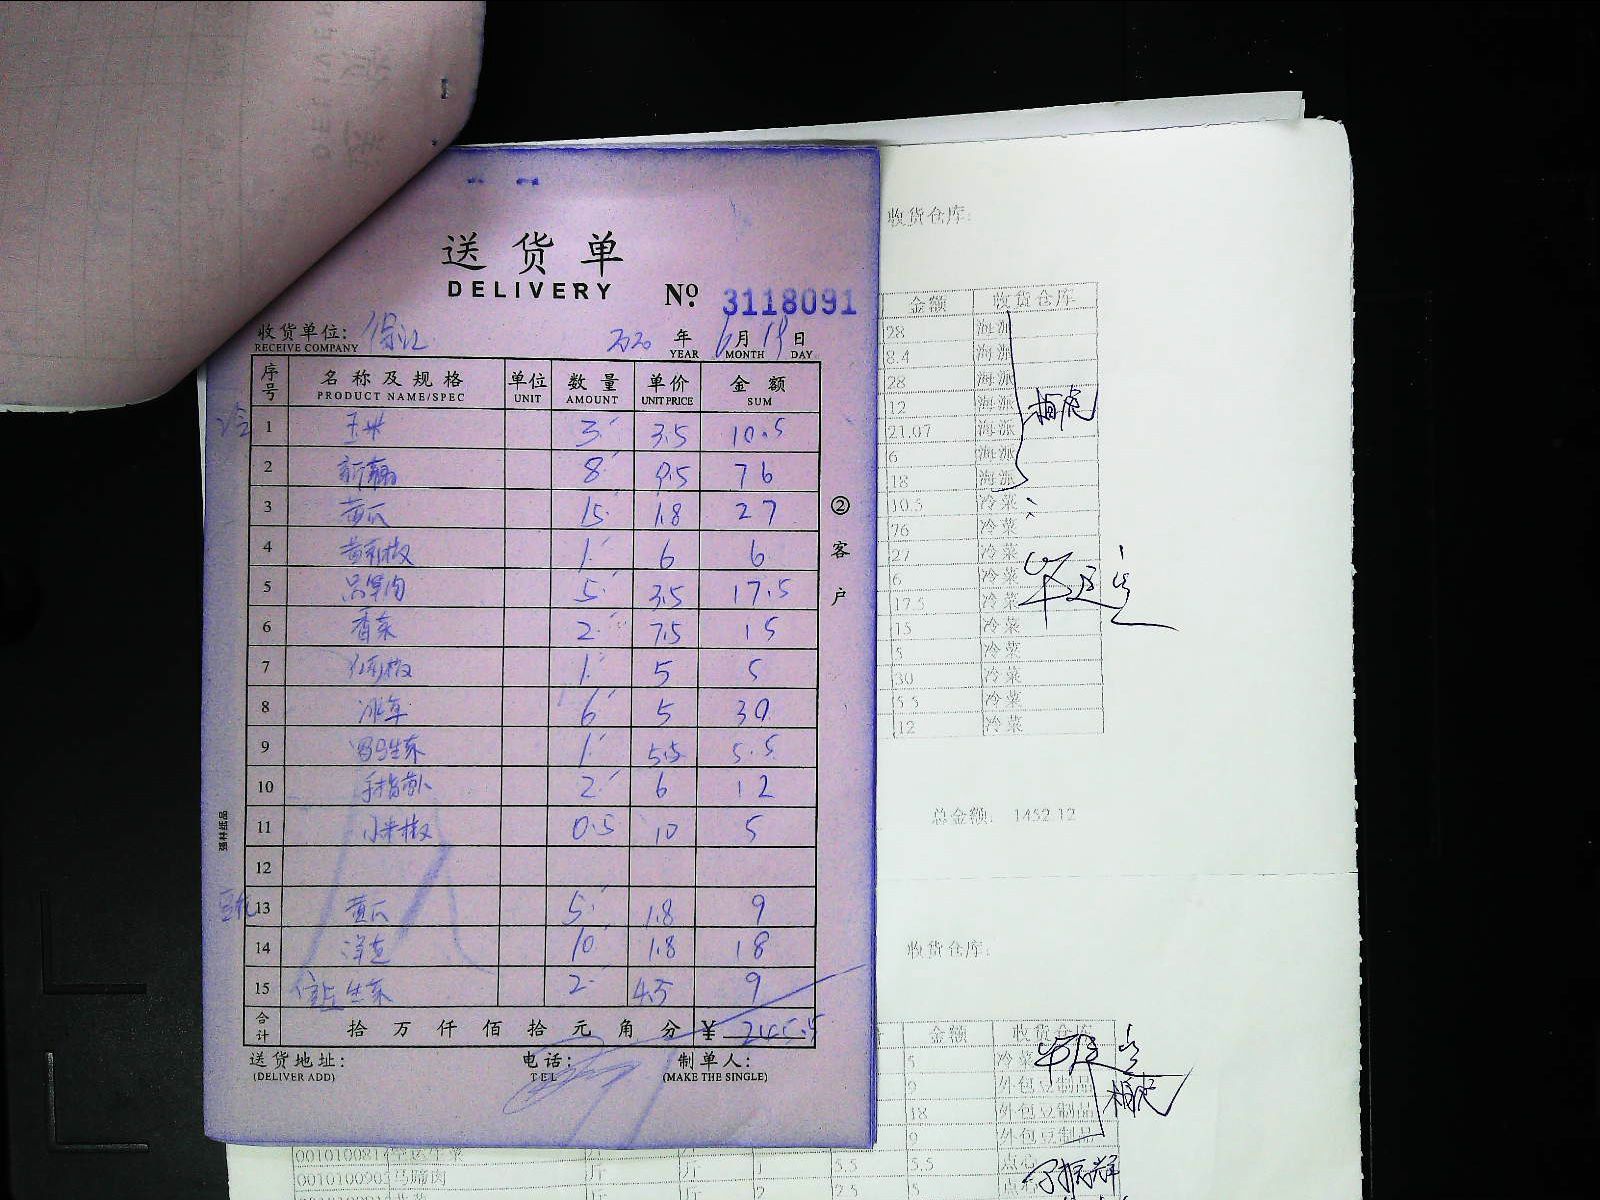 送货单
DELIVERY
№ 3118091
收货单位:
RECEIVE COMPANY
2020 年 6 月 19 日
YEAR MONTH DAY
序号 名称及规格 单位 数量 单价 金额
PRODUCT NAME/SPEC UNIT AMOUNT UNIT PRICE SUM
冷
1 玉米 3 3.5 10.5
2 8 9.5 76
3 黄瓜 15 1.8 27
4 黄彩椒 1 6 6
5 5 3.5 17.5
6 香菜 2 7.5 15
7 1 5 5
8 冰草 6 5 30
9 罗马生菜 1 5.5 5.5
10 手指黄瓜 2 6 12
11 小米椒 0.5 10 5
12
13 黄瓜 5 1.8 9
14 洋葱 10 1.8 18
15 生菜 2 4.5 9
合计 拾 万 仟 佰 拾 元 角 分 ¥ 245.5
送货地址: 电话: 制单人:
(DELIVER ADD) TEL (MAKE THE SINGLE)
②客户
强林纸品
收货仓库:
金额 收货仓库
28 海派
8.4 海派
28 海派
12 海派
21.07 海派
6 海派
18 海派
10.5 冷菜
76 冷菜
27 冷菜
6 冷菜
17.5 冷菜
15 冷菜
5 冷菜
30 冷菜
5.5 冷菜
12 冷菜
总金额: 1452.12
收货仓库:
金额 收货仓库
5 冷菜
9 外包豆制品
18 外包豆制品
9 外包豆制品
斤 斤 1 5.5 5.5 点心
马蹄肉 斤 斤 2 2.5 5 点心